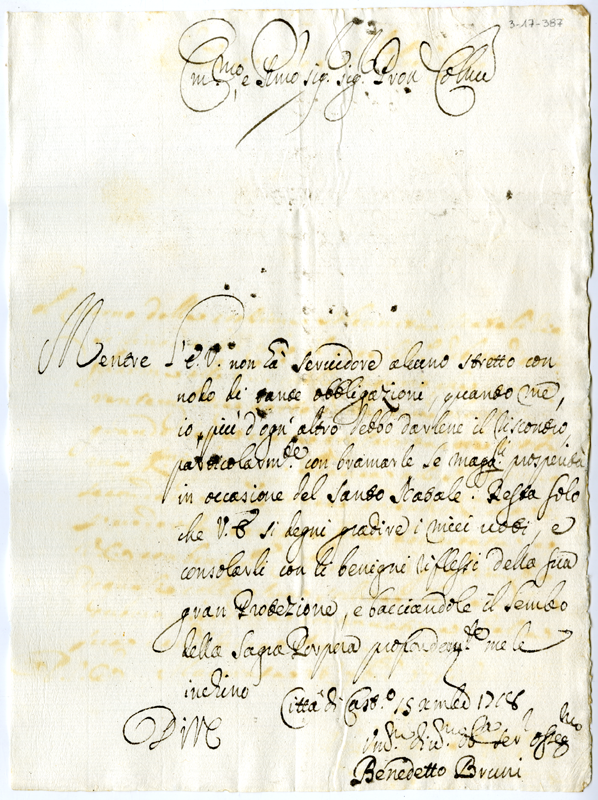 3-17-387
Em.mo e Rmo sig. sig. Pron Col.mo
Mentre l'E. V. non hà servidore alcuno stretto con
nodo di tante obbligazioni, quanto me,
io più d'ogn' altro debbo darlene il riscontro,
particolarm.te con bramarle le magg.ri prosperità
in occasione del Santo Natale. Resta solo
che V. E. si degni gradire i miei voti, e
consolarli con li benigni riflessi della sua
gran Protezione, e bacciandole il lembo
della Sagra Porpora profondam.te me le
inchino
Città di Cast.o 15 xmbre
Di V. E.
Um.mo Dev.mo ser
Benedetto Bruni